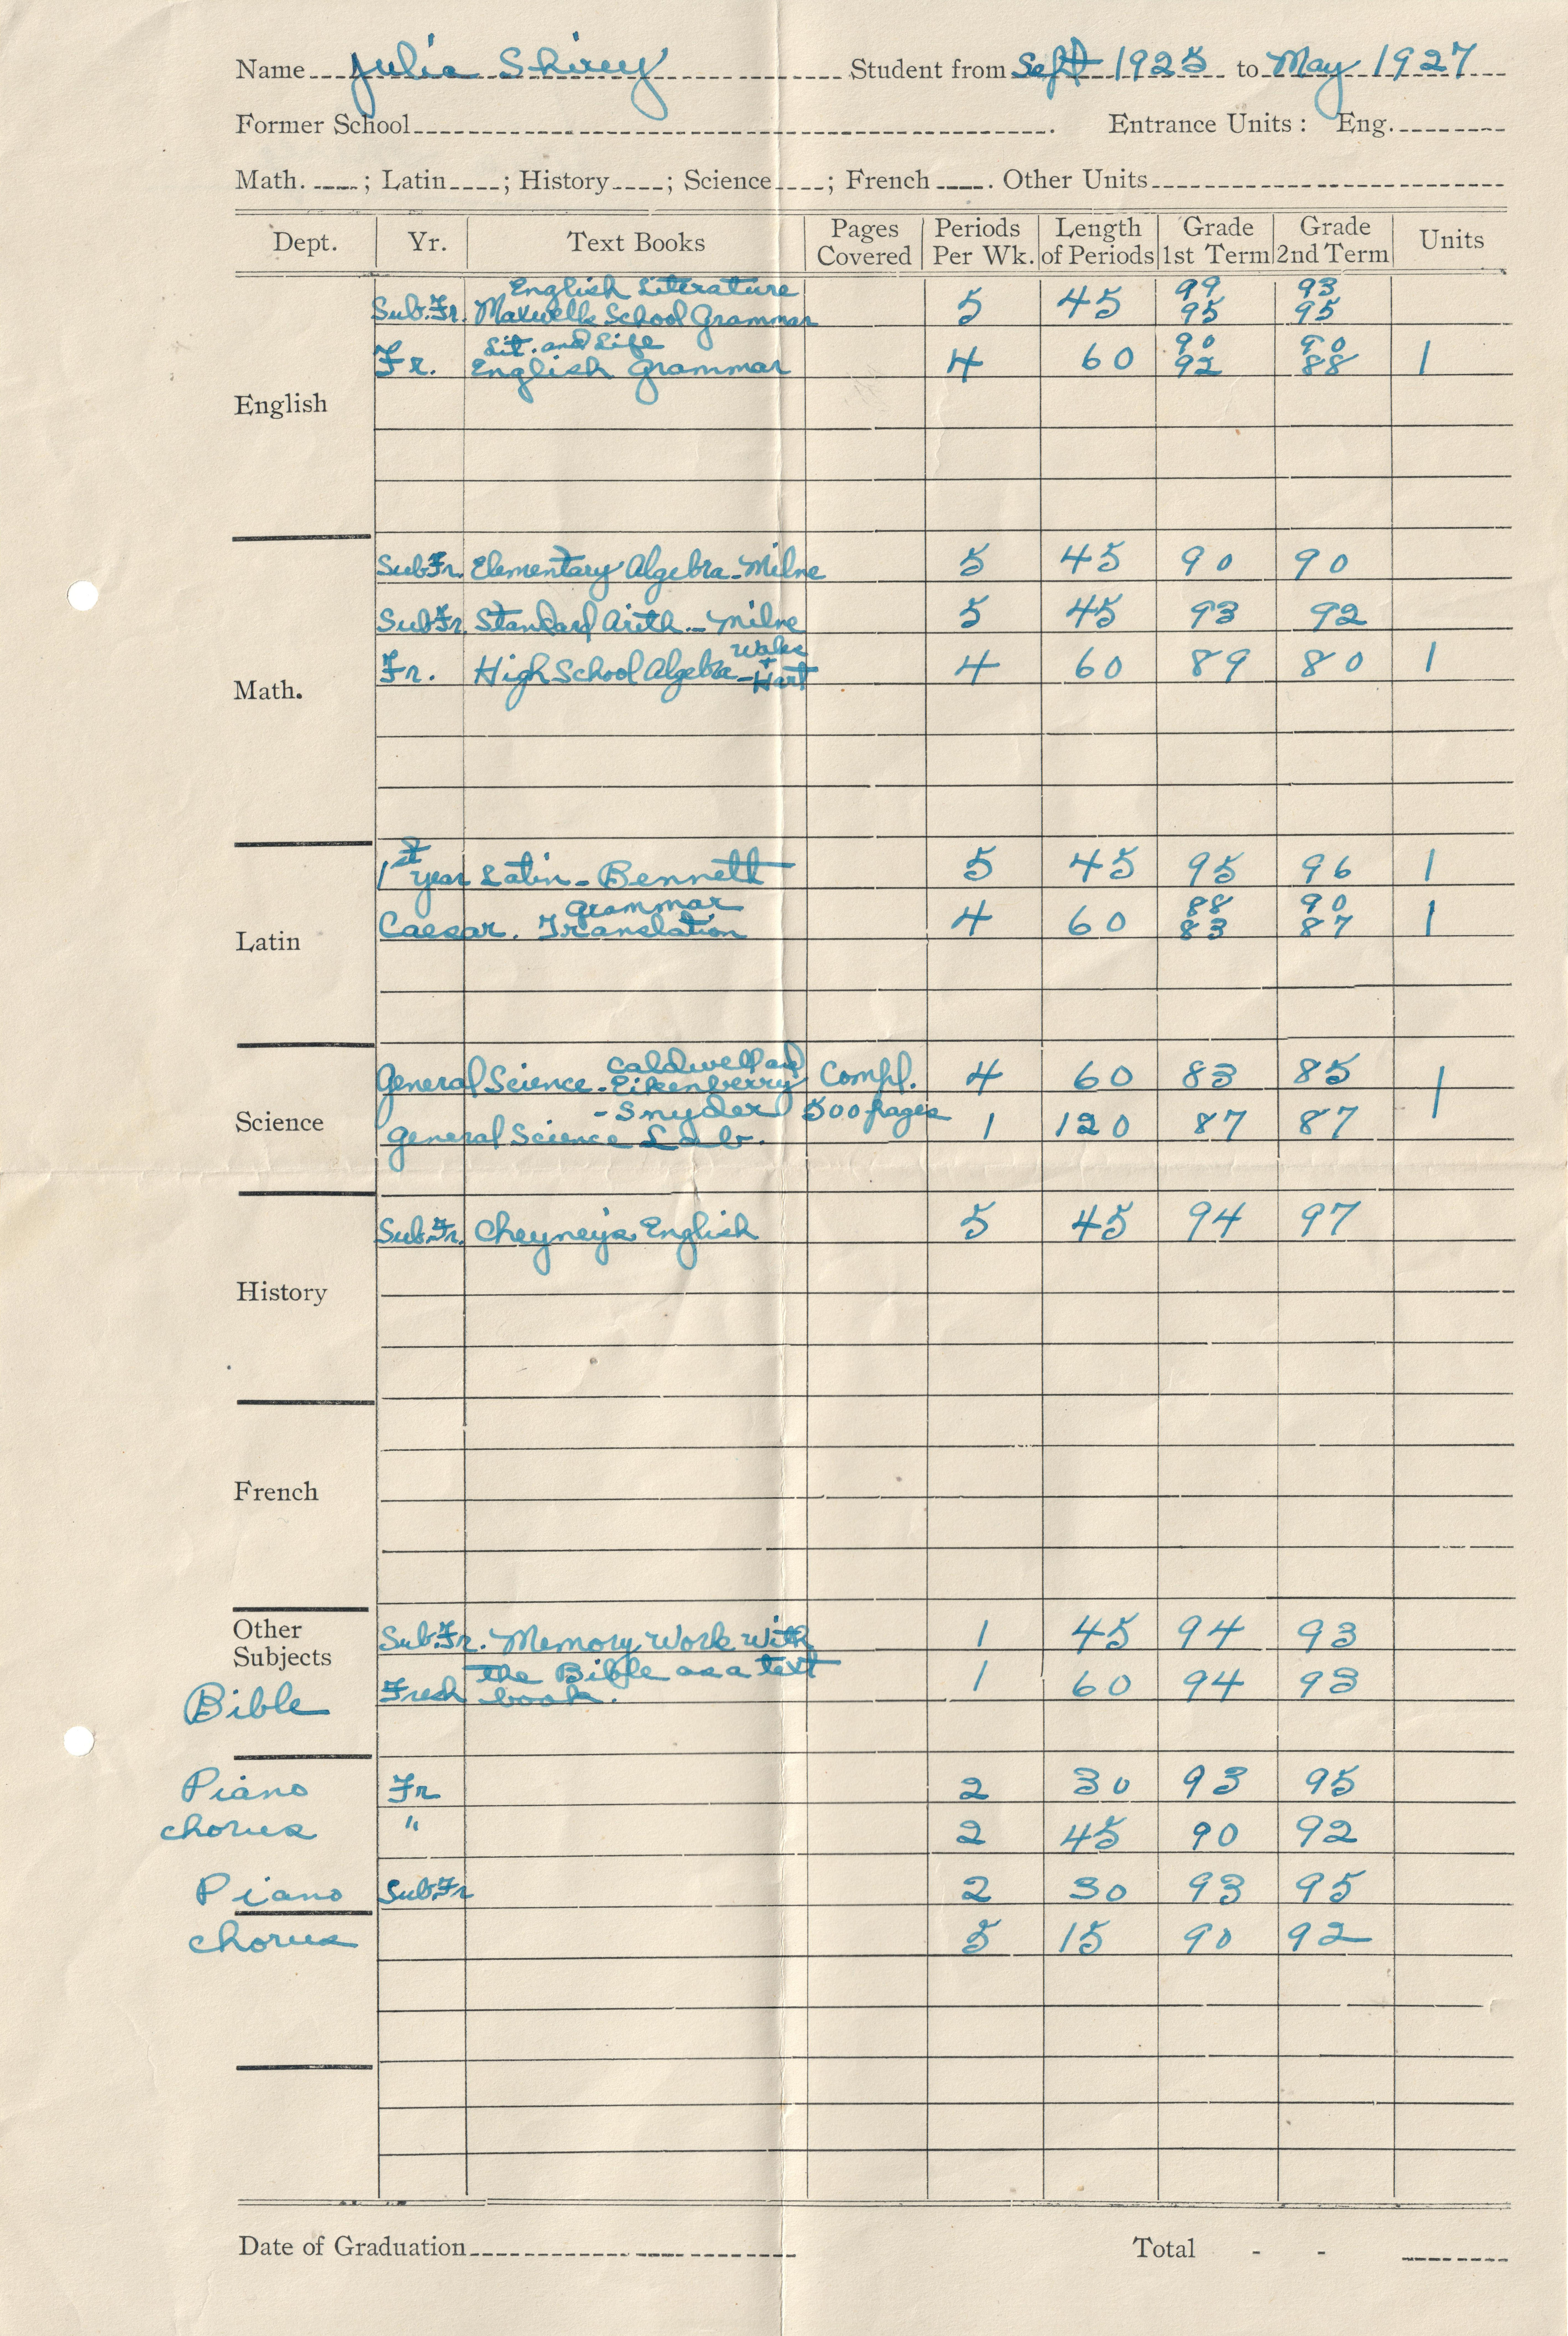 Name Julia Shirey Student from Sept 1925 to May 1927
Former School . Entrance Units : Eng.
Math. ; Latin ; History ; Science ; French . Other Units
Dept. Yr. Text Books Pages Covered Periods Per Wk. Length of Periods Grade 1st Term Grade 2nd Term Units
English Literature 99 93
Sub. Fr. Maxwells School Grammar 5 45 95 95
Lit. and Life 90 90
Fr. English Grammar 4 60 92 88 1
English
Sub Fr. Elementary Algebra - Milne 5 45 90 90
Sub Fr. Standard Arith. - Milne 5 45 93 92
Fr. High School Algebra - Wales + Hart 4 60 89 80 1
Math.
1st year Latin - Bennett 5 45 95 96 1
Grammar 88 90
Caesar. Translation 4 60 83 87 1
Latin
General Science - Caldwell and Eikenberry Compl. 4 60 83 85 1
- Snyder 500 pages
General Science Lab. 1 120 87 87
Science
Sub. Fr. Cheyney's English 5 45 94 97
History
French
Other Subjects
Sub. Fr. Memory Work with 1 45 94 93
Bible Fresh the Bible as a text book. 1 60 94 93
Piano Fr 2 30 93 95
chorus " 2 45 90 92
Piano Sub. Fr 2 30 93 95
chorus 5 15 90 92
Date of Graduation Total - -